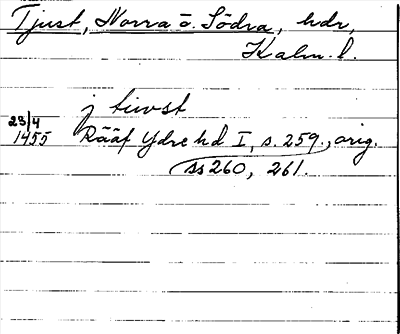 Tjust, Norra o. Södra, hdr,
Kalm. l.
j tiwst
23/4
1455 Rääf Ydre hd I, s. 259., orig.
ss 260, 261.